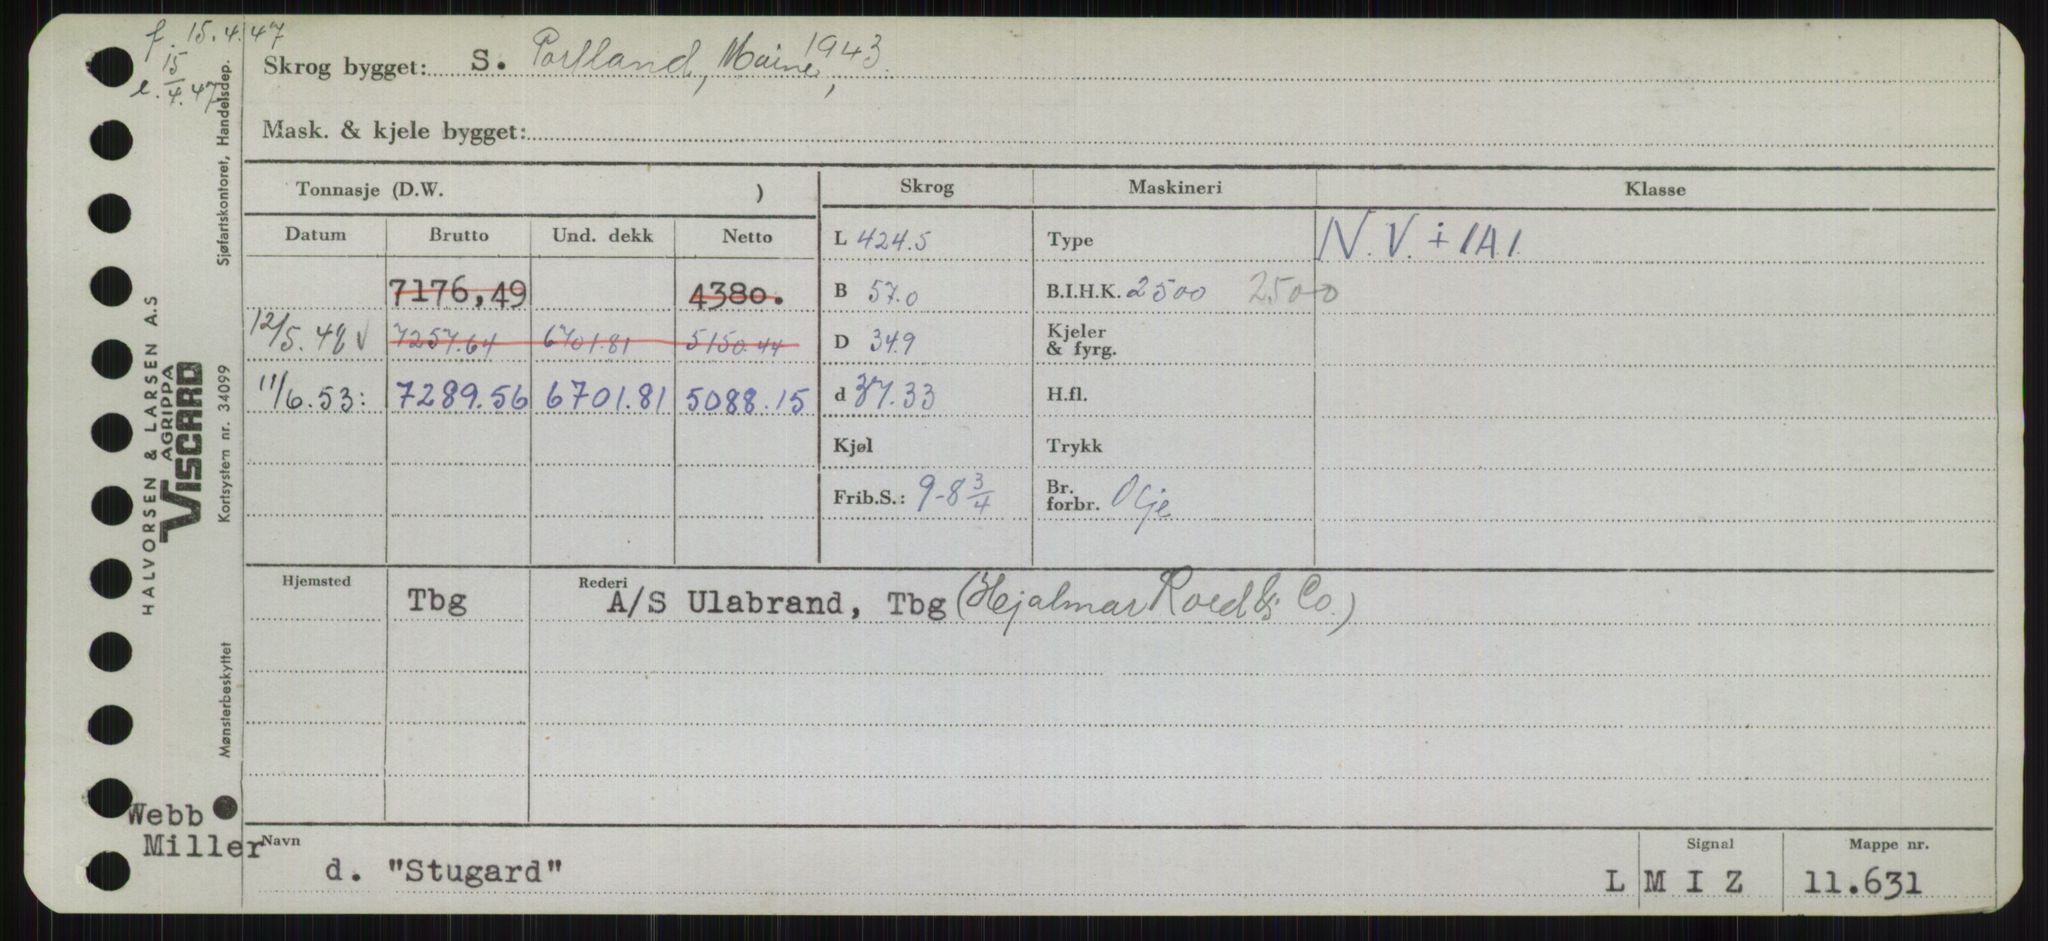 f. 15.4.47
e. 15/4.47
Skrog bygget: S. Portland, Maine, 1943.
Mask. & kjele bygget:
Tonnasje (D.W. )
Skrog
Maskineri
Klasse
Datum Brutto Und. dekk Netto
L 424.5
Type
N.V. + 1A1.
7176,49 4380.
B 57.0
B.I.H.K. 2500 2500
12/5.48 √ 7257.64 6701.81 5150.44
D 34.9
Kjeler
& fyrg.
11/6.53: 7289.56 6701.81 5088.15
d 37.33
H.fl.
Kjøl
Trykk
Frib.S.: 9-8 3/4
Br.
forbr. Olje
Hjemsted
Tbg
Rederi
A/S Ulabrand, Tbg (Hjalmar Røed & Co.)
Webb
Miller
Navn
d. "Stugard"
Signal
L M I Z
Mappe nr.
11.631
HALVORSEN & LARSEN A.S
AGRIPPA
VISCARD
Mønsterbeskyttet
Kortsystem nr. 34099
Sjøfartskontoret, Handelsdep.